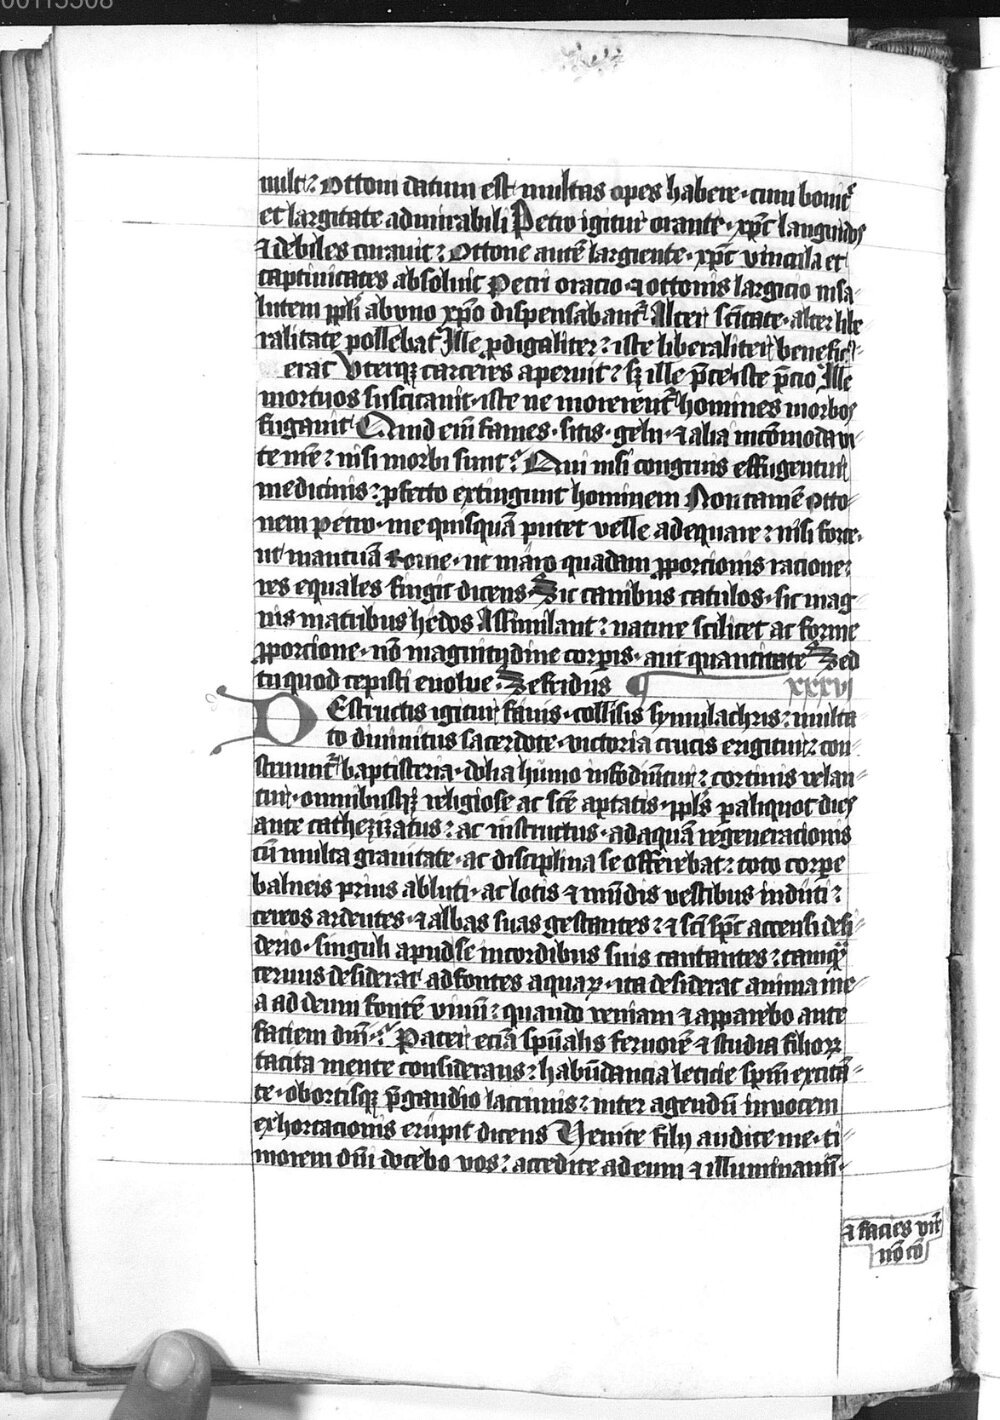 00115308
nult: Ottoni datum est multas opes habere · cum bonit᷒
et largitate admirabili Petro igitur orante · xp̄c languidos
⁊ debiles curauit: Ottone autē largiente · xp̄c vincula et
captiuitates absoluit Petri oracio · ⁊ ottonis largicio in sa⸗
lutem pp̄li ab uno xp̄o dispensabant᷒ Alter sc̄itate · alter libe⸗
ralitate pollebat Ille ꝓdigaliter: iste liberaliter benefic⸗
erat Vterqꝫ carceres aperuit: sꝫ ille p̄ce · iste p̄cio Ille
mortuos suscitauit · iste ne morerent᷒ homines morbos
fugauit Quid eīm fames · sitis · gelu · ⁊ alia incōmoda vi⸗
te nr̄e: nisi morbi sunt: Qui nisi congruis effugentur
medicinis: ꝓfecto extingunt hominem Non tamē otto⸗
nem petro · me quisquā putet velle adequare: nisi forte ·
ut mantuā Rome · ut maro quadam ꝓporcionis racione:
res equales fingit dicens · Sic canibus catulos · sic mag
nis matribus hedos Assimilant: nature scilicet ac forme
ꝓporcione · nō magnitudine corꝑis · aut quantitate Sed
tu quod cepisti euolue · Sefridus ¶ xxxvj
DEstructis igitur fanis · collisis symulachris: multa
to diuinitus sacerdote · victoria crucis erigitur: con⸗
struunt᷒ baptisteria · dolia humo infodiūtur: cortinis velan⸗
tur · omnibusqꝫ religiose ac scē aptatis · pp̄ls ꝑ aliquot dies
ante cathezizatus: ac instructus · ad aquā regeneracionis
cū multa grauitate · ac disciplina se offerebat: toto corꝑe
balneis prius abluti · ac lotis ⁊ mūdis vestibus induti:
cereos ardentes · ⁊ albas suas gestantes: ⁊ sc̄i sp̄c accensi desi⸗
derio · singuli apud se in cordibus suis cantantes: tamqꝫ
ceruus desiderat ad fontes aquaꝝ · ita desiderat anima me⸗
a ad deum fontē viuū: quando veniam ⁊ apparebo ante
faciem dn̄i · Pater eciā sp̄ualis feruorē ⁊ studia filioꝝ
tacita mente considerans: habūdancia leticie sp̄m excitā⸗
te · obortisqꝫ p̄ gaudio lacrimis: inter agendū in vocem
exhortacionis erupit dicens Venite filij audite me · ti⸗
morem dn̄i docebo vos: accedite ad eum ⁊ illuminamī ·
⁊ facies vr̄e
nō cō